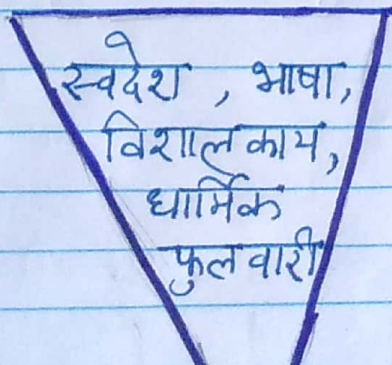 स्वदेश, भाषा,
विशालकाय,
धार्मिक
फुलवारी